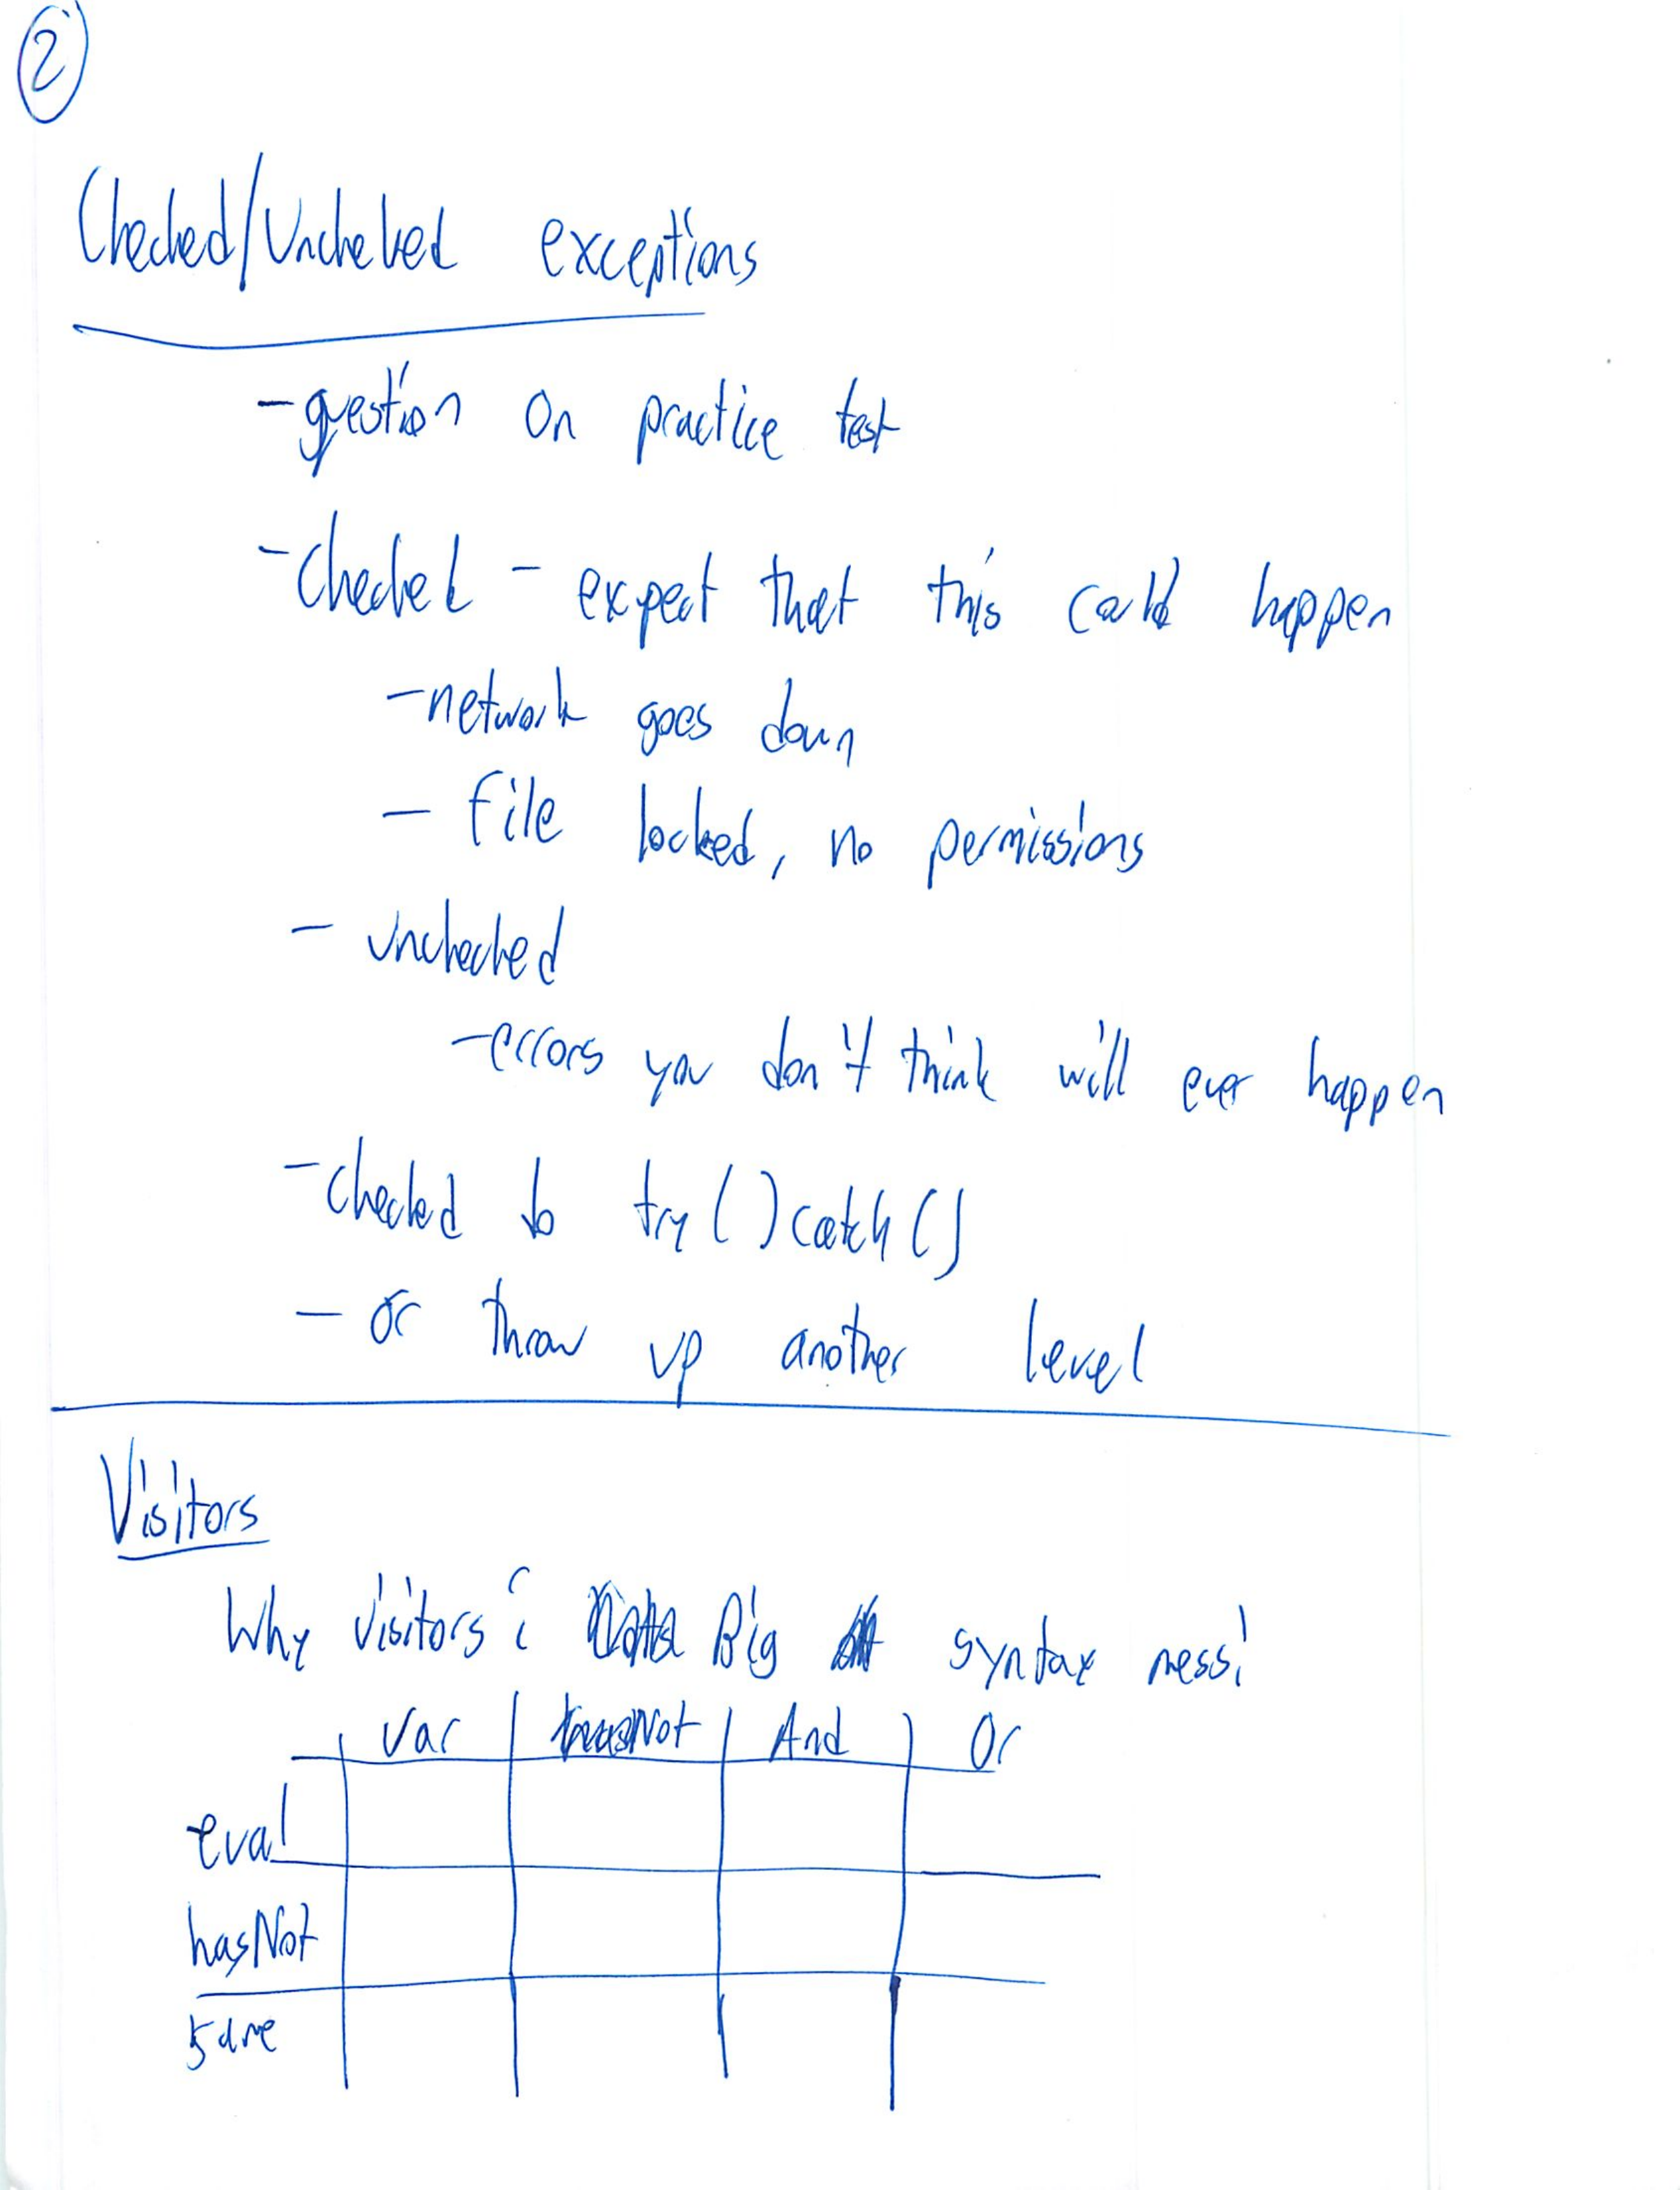 2
Checked/Unchecked exceptions
- question on practice test
- Checked - expect that this could happen
- network goes down
- file locked, no permissions
- unchecked
- errors you don't think will ever happen
- checked do try ( ) catch ( )
- or throw up another level
Visitors
Why visitors? Big syntax mess!
Var Not And Or
eval
hasNot
same